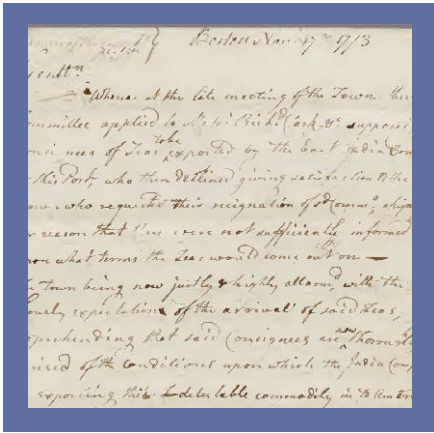 Boston Nov. 17th 1773
Gentn
Whereas at the late meeting of the Town the
Committee applied to Richd Clark supposed
of Teas to be exported by the East India Com
this Port, who then declined giving satisfaction to the
who requested their resignation of sd Commn,
reason that they were not sufficiently informed
upon what terms the Teas would come out on —
town being now justly & highly alarmd with the
hourly expectation of the arrival of said Teas,
apprehending that said Consignees are now thorough
of the Conditions upon which the India Comp
exporting this detestable commodity in to America